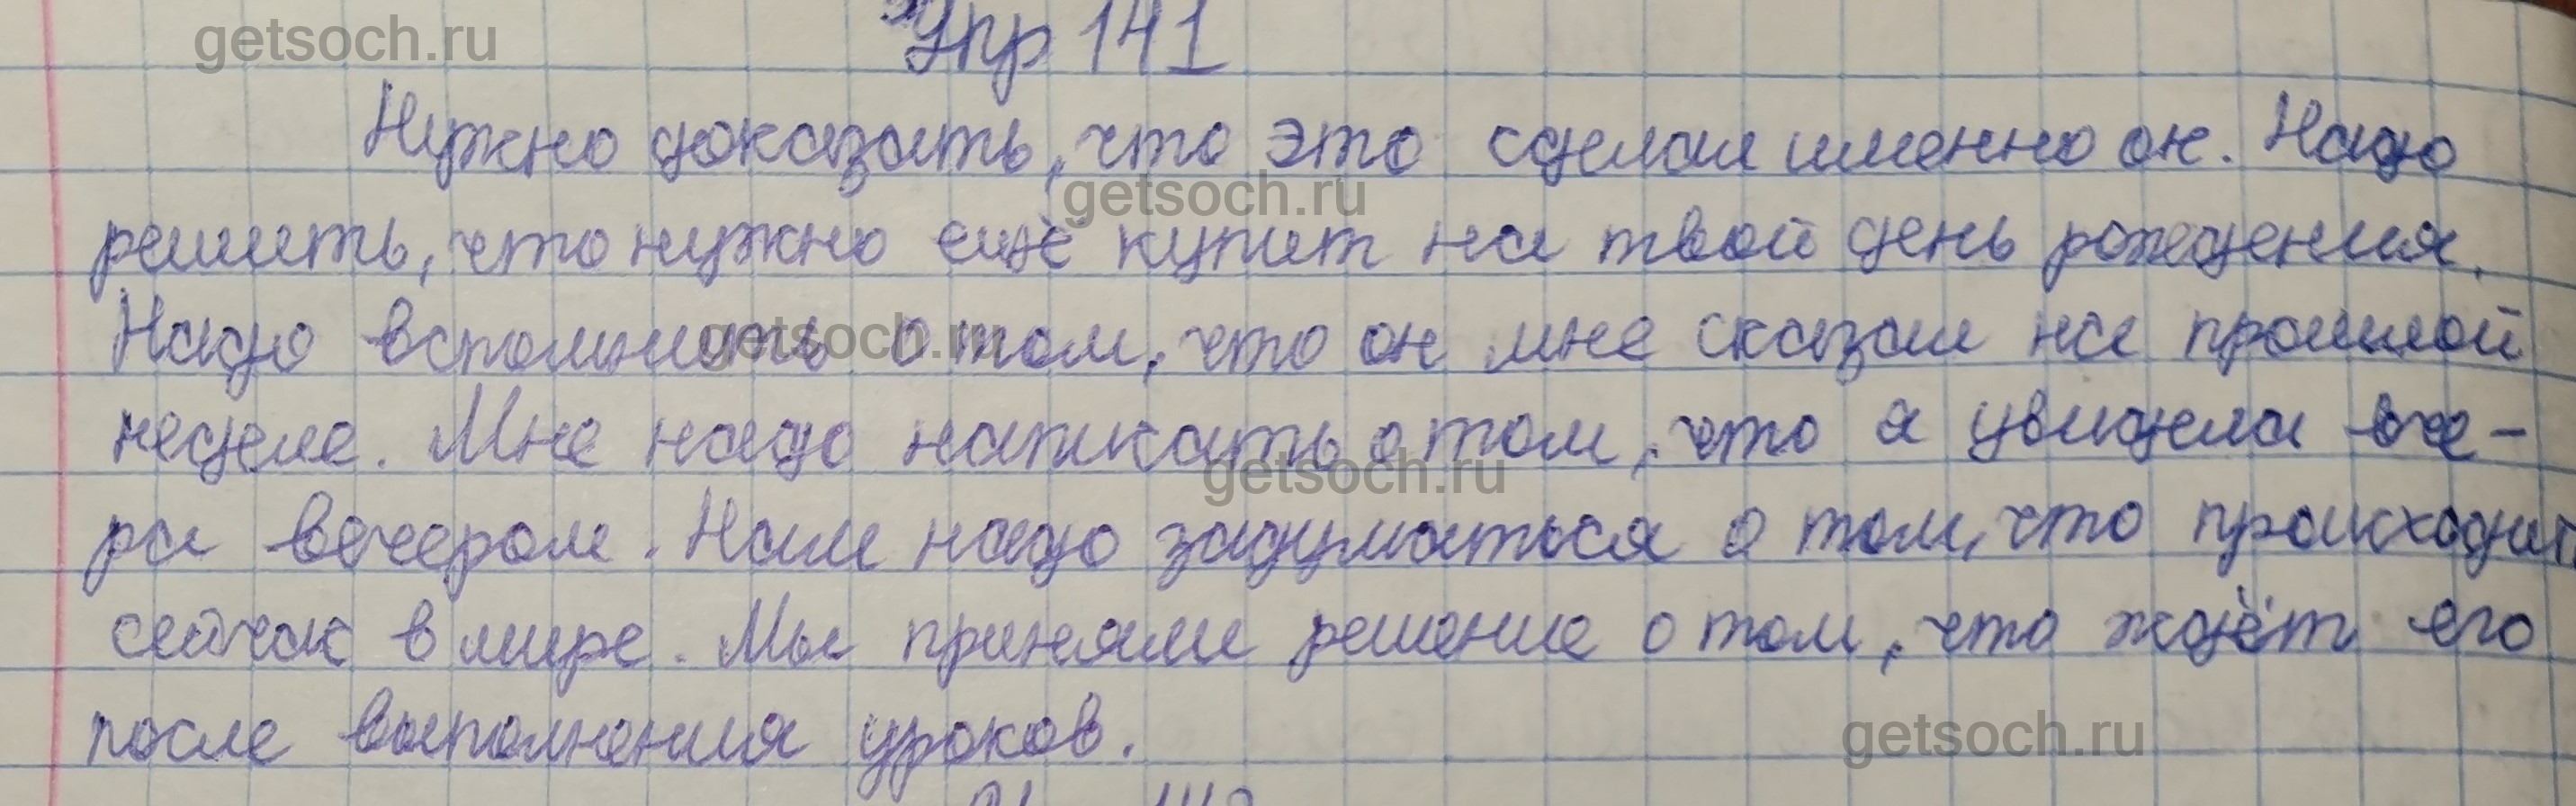 getsoch.ru
Упр 141
Нужно доказать, что это сделал именно он. Надо
getsoch.ru
решить, что нужно ещё купит на твой день рождения.
Надо вспомнить о том, что он мне сказал на прошлой
getsoch.ru
неделе. Мне надо написать о том, что я увидела вче-
getsoch.ru
ра вечером. Нам надо задуматься о том, что происходит
сейчас в мире. Мы приняли решение о том, что ждёт его
после выполнения уроков.
getsoch.ru